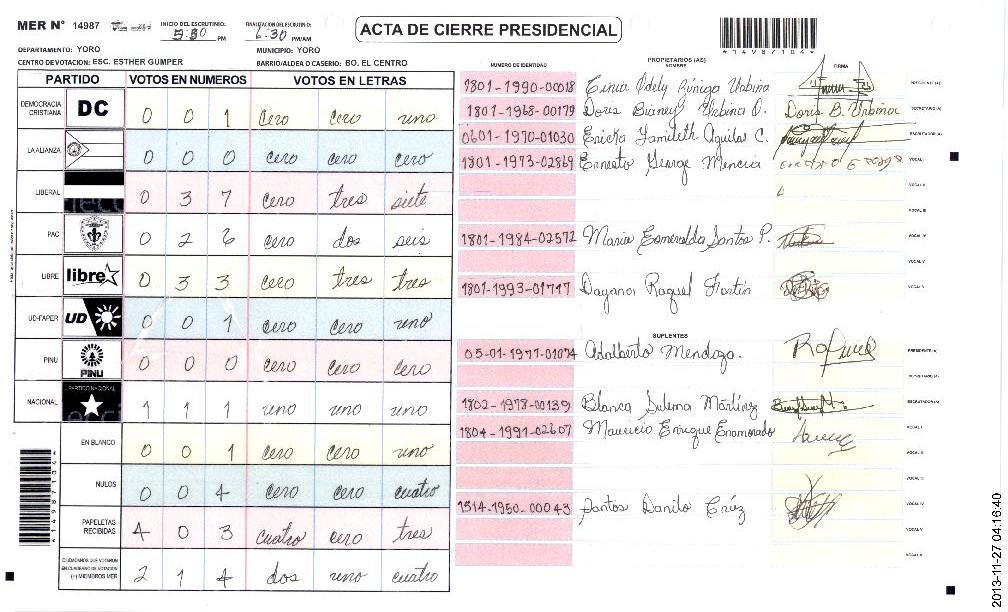 MER N° 14987
INICIO DEL ESCRUTINIO: 5:30 PM
FINALIZACION DEL ESCRUTINIO: 6:30 PM/AM
ACTA DE CIERRE PRESIDENCIAL
*14987104*
DEPARTAMENTO: YORO
MUNICIPIO: YORO
CENTRO DE VOTACION: ESC. ESTHER GUMPER
BARRIO/ALDEA O CASERIO: BO. EL CENTRO
PARTIDO VOTOS EN NUMEROS VOTOS EN LETRAS
DEMOCRACIA CRISTIANA DC 0 0 1 cero cero uno
LA ALIANZA 0 0 0 cero cero cero
LIBERAL 0 3 7 cero tres siete
PAC 0 2 6 cero dos seis
LIBRE libre 0 3 3 cero tres tres
UD-FAPER UD 0 0 1 cero cero uno
PINU PINU 0 0 0 cero cero cero
NACIONAL PARTIDO NACIONAL 1 1 1 uno uno uno
EN BLANCO 0 0 1 cero cero uno
NULOS 0 0 4 cero cero cuatro
PAPELETAS RECIBIDAS 4 0 3 cuatro cero tres
CIUDADANOS QUE VOTARON EN CUADERNO DE VOTACION (+) MIEMBROS MER 2 1 4 dos uno cuatro
*14987104*
PROPIETARIOS (AS)
NUMERO DE IDENTIDAD NOMBRE FIRMA
1801-1990-00018 Ydely Zúniga Urbina PRESIDENTE (A)
1801-1968-00179 Doris Urbina O. Doris B. Urbina SECRETARIO (A)
0601-1970-01030 Ericka Yamileth Aguilar C. ESCRUTADOR (A)
1801-1973-02869 Ernesto George Mencia VOCAL I
VOCAL II
VOCAL III
1801-1984-02572 Maria Esmeralda Santos P. VOCAL IV
VOCAL V
1801-1993-01717 Dayana Raquel Fortín
SUPLENTES
05-01-1977-01074 Adalberto Mendoza. PRESIDENTE (A)
SECRETARIO (A)
1802-1978-00139 Blanca Suloma Martínez ESCRUTADOR (A)
1804-1991-02607 Mauricio Enrique Enamorado VOCAL I
1514-1950-00043 Santos Danilo Crúz
2013-11-27 04:16:40